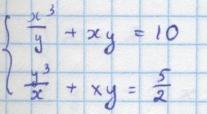 x³/y + xy = 10
y³/x + xy = 5/2